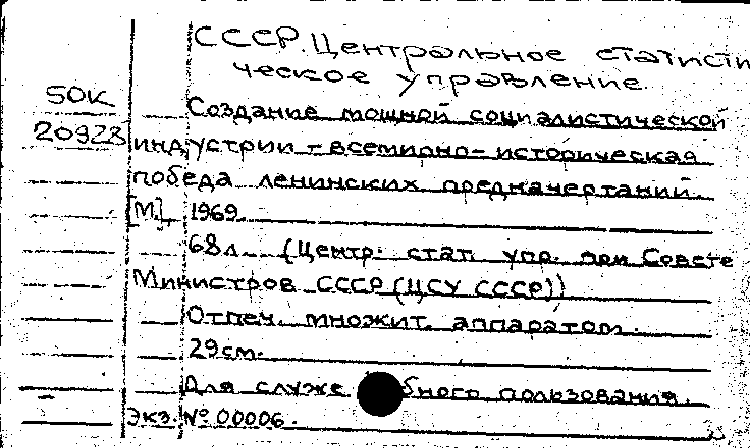 СССР. Центральное статисти
ческое управление.
50К
Создание мощной социалистической
индустрии - всемирно-историческая
победа ленинских предначертаний.
[М.], 1969.
68л. (Центр. стат. упр. при Совете
Министров СССР (ЦСУ СССР))
Отпеч. множит. аппаратом.
29см.
Для служебного пользования.
Экз. № 00006.